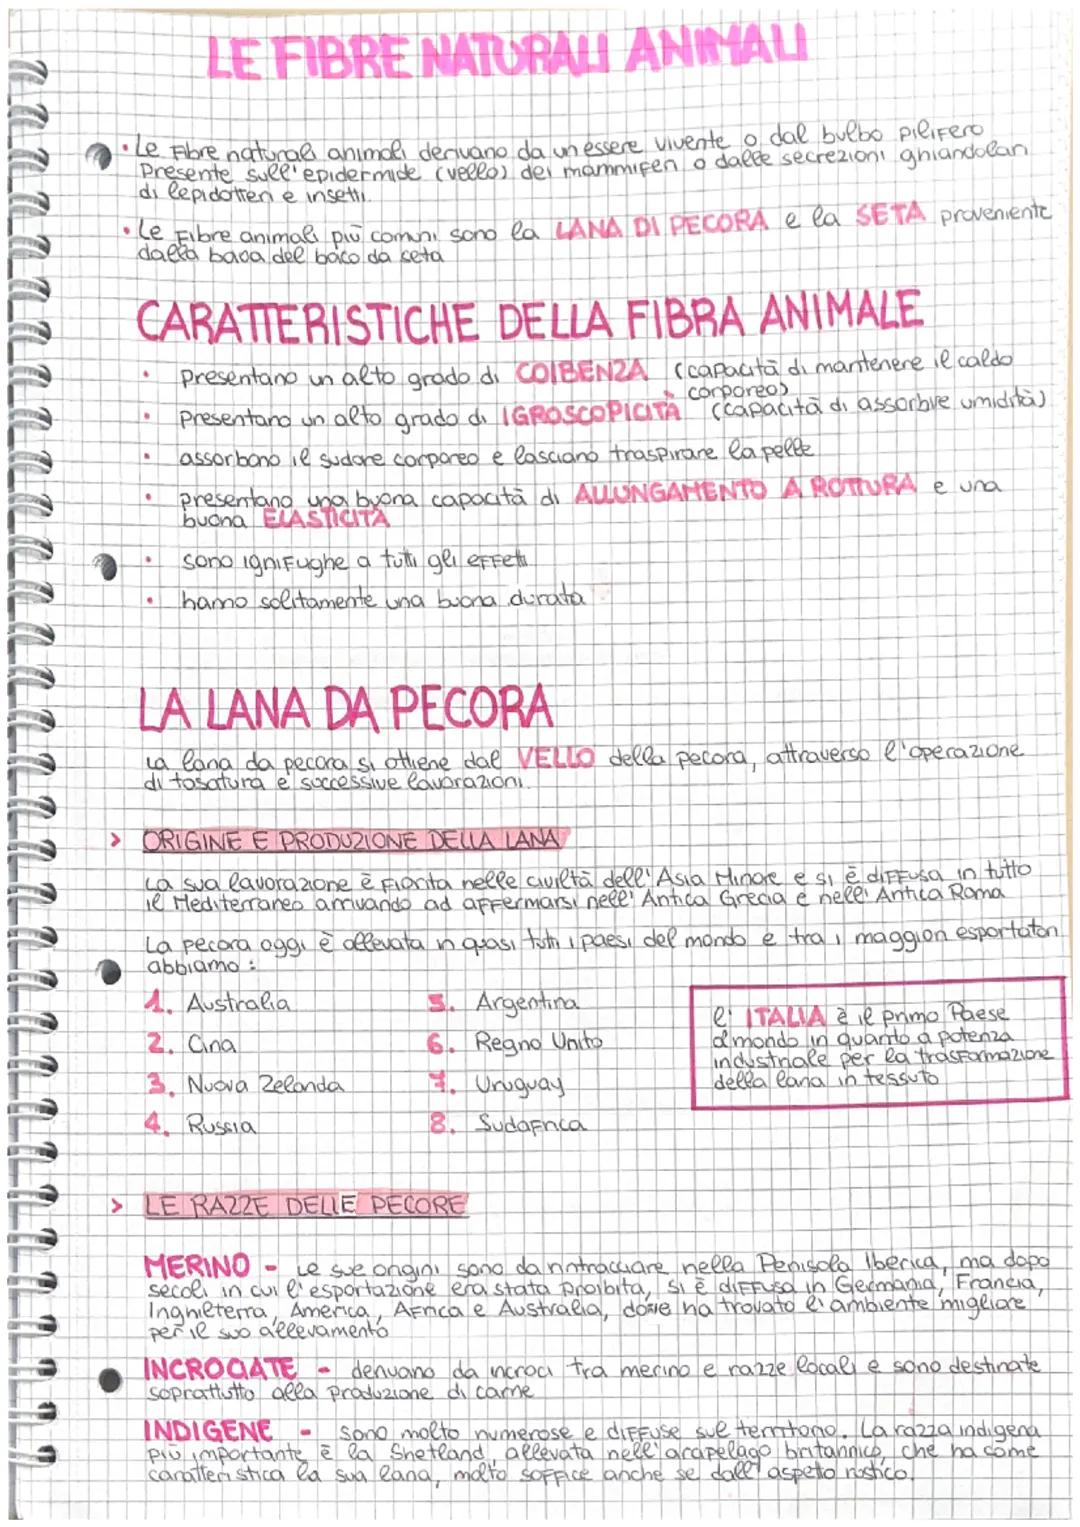 LE FIBRE NATURALI ANIMALI
• Le fibre naturali animali derivano da un essere vivente o dal bulbo pilifero
presente sull'epidermide (vello) dei mammiferi o dalle secrezioni ghiandolari
di lepidotteri e insetti.
• Le fibre animali più comuni sono la LANA DI PECORA e la SETA proveniente
dalla bava del baco da seta
CARATTERISTICHE DELLA FIBRA ANIMALE
• presentano un alto grado di COIBENZA (capacità di mantenere il caldo
corporeo)
• presentano un alto grado di IGROSCOPICITÀ (capacità di assorbire umidità)
• assorbono il sudore corporeo e lasciano traspirare la pelle
• presentano una buona capacità di ALLUNGAMENTO A ROTTURA e una
buona ELASTICITÀ
• sono ignifughe a tutti gli effetti
• hanno solitamente una buona durata
LA LANA DA PECORA
La lana da pecora si ottiene dal VELLO della pecora, attraverso l'operazione
di tosatura e successive lavorazioni.
> ORIGINE E PRODUZIONE DELLA LANA
La sua lavorazione è fiorita nelle civiltà dell'Asia Minore e si è diffusa in tutto
il Mediterraneo arrivando ad affermarsi nell'Antica Grecia e nell'Antica Roma
La pecora oggi è allevata in quasi tutti i paesi del mondo e tra i maggiori esportatori
abbiamo:
1. Australia 5. Argentina
2. Cina 6. Regno Unito
3. Nuova Zelanda 7. Uruguay
4. Russia 8. Sudafrica
l'ITALIA è il primo Paese
al mondo in quanto a potenza
industriale per la trasformazione
della lana in tessuto
> LE RAZZE DELLE PECORE
MERINO - Le sue origini sono da rintracciare nella Penisola Iberica, ma dopo
secoli in cui l'esportazione era stata proibita, si è diffusa in Germania, Francia,
Inghilterra, America, Africa e Australia, dove ha trovato l'ambiente migliore
per il suo allevamento
INCROCIATE - derivano da incroci tra merino e razze locali e sono destinate
soprattutto alla produzione di carne
INDIGENE - sono molto numerose e diffuse sul territorio. La razza indigena
più importante è la Shetland, allevata nell'arcipelago britannico, che ha come
caratteristica la sua lana, molto soffice anche se dall'aspetto rustico.